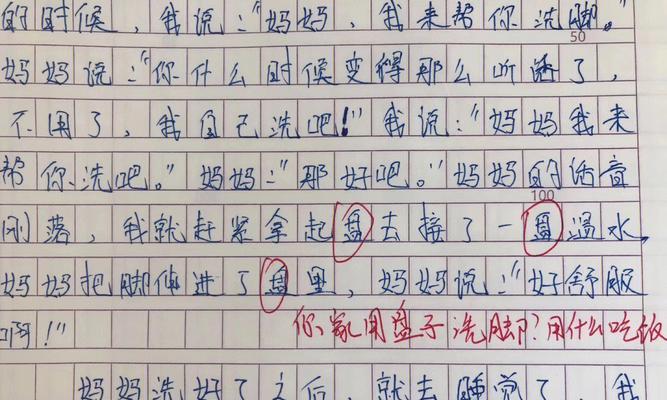 的时候，我说：“妈妈，我来帮你洗脚。”
50
妈妈说：“你什么时候变得那么听话了，
不用了，我自己洗吧！”我说：“妈妈我来
帮你洗吧。”妈妈：“那好吧。”妈妈的话音
100
刚落，我就赶紧拿起盘去接了一盘温水，
妈妈把脚伸进了盘里，妈妈说：“好舒服
啊！”
你家用盘子洗脚？用什么吃饭
妈妈洗好了之后，就去睡觉了，我